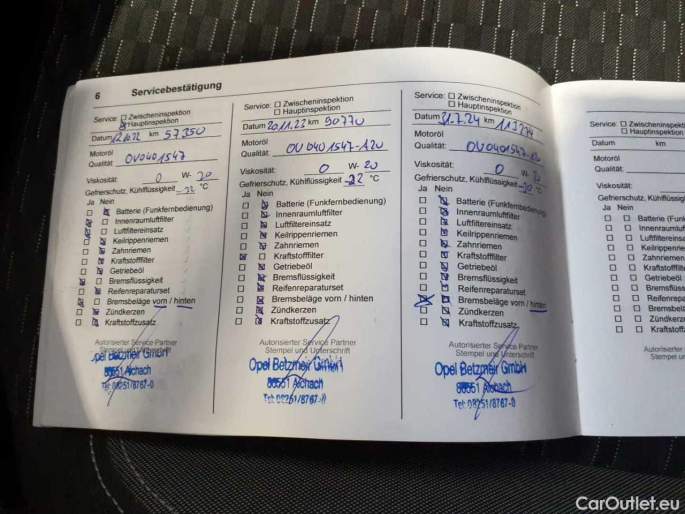 6 Servicebestätigung
Service: ☐ Zwischeninspektion
☒ Hauptinspektion
Datum km 57.350
Motoröl
Qualität: OV0401547
Viskosität: 0 W- 20
Gefrierschutz, Kühlflüssigkeit °C
Ja Nein
Batterie (Funkfernbedienung)
Innenraumluftfilter
Luftfiltereinsatz
Keilrippenriemen
Zahnriemen
Kraftstofffilter
Getriebeöl
Bremsflüssigkeit
Reifenreparaturset
Bremsbeläge vorn / hinten
Zündkerzen
Kraftstoffzusatz
Autorisierter Service Partner
Stempel und Unterschrift
Opel Betzmeir GmbH
86551 Aichach
Tel: 08251/8767-0
Service: ☐ Zwischeninspektion
☐ Hauptinspektion
Datum 20.11.23 km 90770
Motoröl
Qualität: OV0401547-A20
Viskosität: 0 W- 20
Gefrierschutz, Kühlflüssigkeit -22 °C
Ja Nein
Batterie (Funkfernbedienung)
Innenraumluftfilter
Luftfiltereinsatz
Keilrippenriemen
Zahnriemen
Kraftstofffilter
Getriebeöl
Bremsflüssigkeit
Reifenreparaturset
Bremsbeläge vorn / hinten
Zündkerzen
Kraftstoffzusatz
Autorisierter Service Partner
Stempel und Unterschrift
Opel Betzmeir GmbH
86551 Aichach
Tel: 08251/8767-0
Service: ☐ Zwischeninspektion
☐ Hauptinspektion
Datum km
Motoröl
Qualität:
Viskosität: 0 W-
Gefrierschutz, Kühlflüssigkeit °C
Ja Nein
Batterie (Funkfernbedienung)
Innenraumluftfilter
Luftfiltereinsatz
Keilrippenriemen
Zahnriemen
Kraftstofffilter
Getriebeöl
Bremsflüssigkeit
Reifenreparaturset
Bremsbeläge vorn / hinten
Zündkerzen
Kraftstoffzusatz
Autorisierter Service Partner
Stempel und Unterschrift
Opel Betzmeir GmbH
86551 Aichach
Tel: 08251/8767-0
Service: ☐ Zwischeninspekti
☐ Hauptinspektion
Datum km
Motoröl
Qualität:
Viskosität:
Gefrierschutz, Kühlflüssig
Ja Nein
Batterie (Funk
Innenraumluft
Luftfiltereinsa
Keilrippenrie
Zahnriemen
Kraftstofffilte
Getriebeöl
Bremsflüssi
Reifenrepa
Bremsbelä
Zündkerze
Kraftstoffz
Autorisier
Stem
CarOutlet.eu